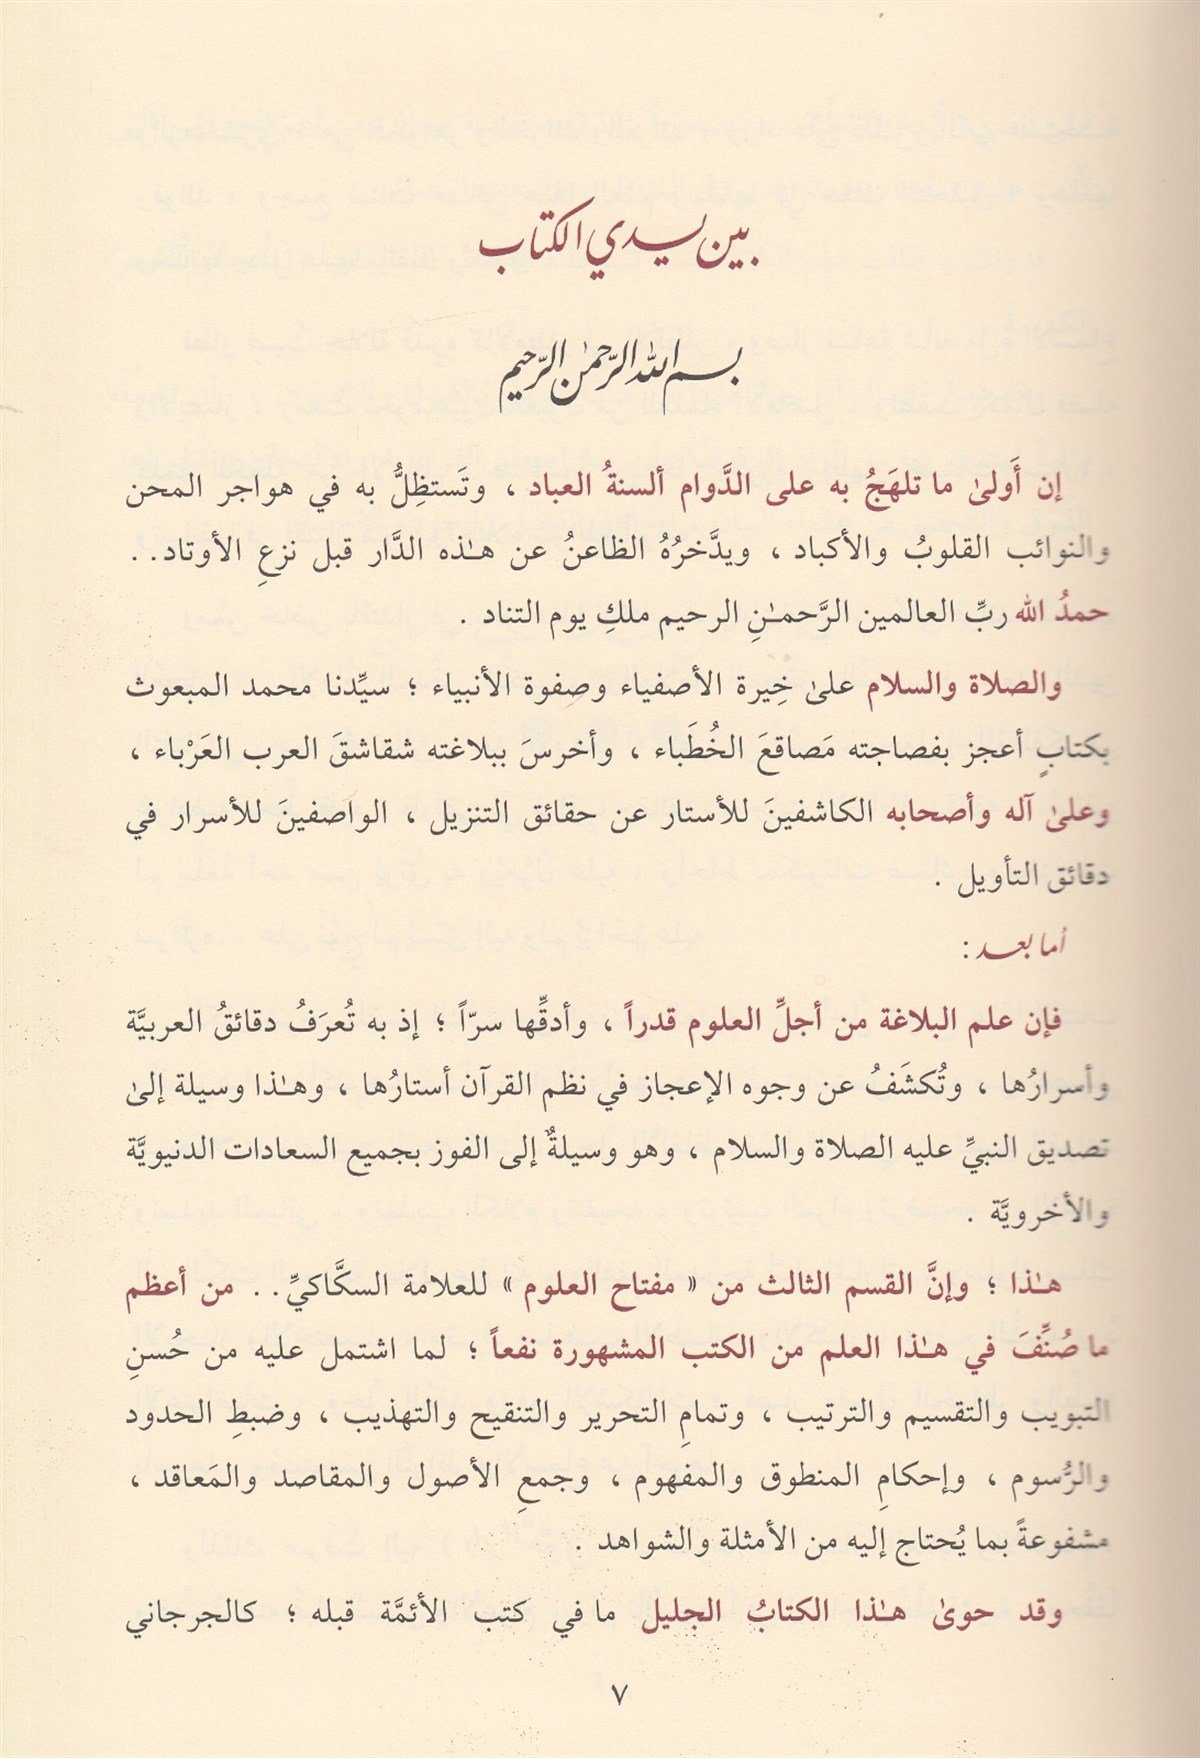 بين يدي الكتاب
بسم الله الرَّحمٰن الرَّحيم
إن أَولىٰ ما تلهَجُ به على الدَّوام ألسنةُ العباد ، وتَستظِلُّ به في هواجر المحن
والنوائب القلوبُ والأكباد ، ويدَّخرُهُ الظاعنُ عن هـٰذه الدَّار قبل نزعِ الأوتاد . .
حمدُ الله ربِّ العالمين الرَّحمـٰنِ الرحيم ملكِ يوم التناد .
والصلاة والسلام علىٰ خِيرة الأصفياء وصفوة الأنبياء ؛ سيِّدنا محمد المبعوث
بكتابٍ أعجز بفصاحته مَصاقعَ الخُطَباء ، وأخرسَ ببلاغته شقاشقَ العرب العَرْباء ،
وعلىٰ آله وأصحابه الكاشفينَ للأستار عن حقائق التنزيل ، الواصفينَ للأسرار في
دقائق التأويل .
أما بعد :
فإن علم البلاغة من أجلِّ العلوم قدراً ، وأدقِّها سرّاً ؛ إذ به تُعرَفُ دقائقُ العربيَّة
وأسرارُها ، وتُكشَفُ عن وجوه الإعجاز في نظم القرآن أستارُها ، وهـٰذا وسيلة إلىٰ
تصديق النبيِّ عليه الصلاة والسلام ، وهو وسيلةٌ إلى الفوز بجميع السعادات الدنيويَّة
والأخرويَّة .
هـٰذا ؛ وإنَّ القسم الثالث من « مفتاح العلوم » للعلامة السكَّاكيِّ . . من أعظم
ما صُنِّفَ في هـٰذا العلم من الكتب المشهورة نفعاً ؛ لما اشتمل عليه من حُسنِ
التبويب والتقسيم والترتيب ، وتمامِ التحرير والتنقيح والتهذيب ، وضبطِ الحدود
والرُّسوم ، وإحكامِ المنطوق والمفهوم ، وجمعِ الأصول والمقاصد والمَعاقد ،
مشفوعةً بما يُحتاج إليه من الأمثلة والشواهد .
وقد حوىٰ هـٰذا الكتابُ الجليل ما في كتب الأئمَّة قبله ؛ كالجرجاني
٧